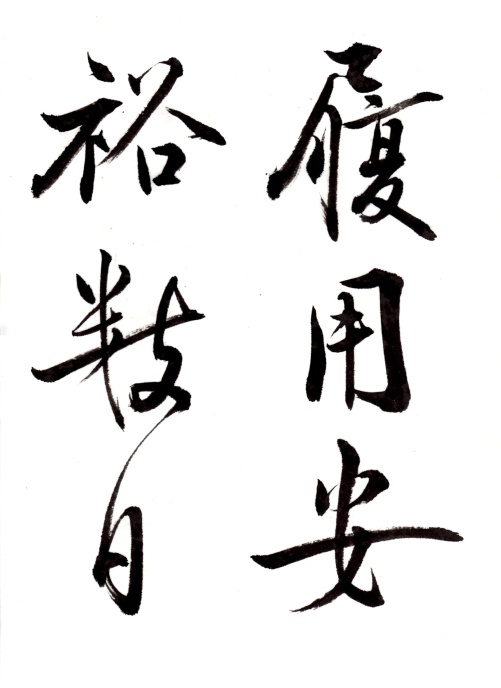 履用安
裕数日